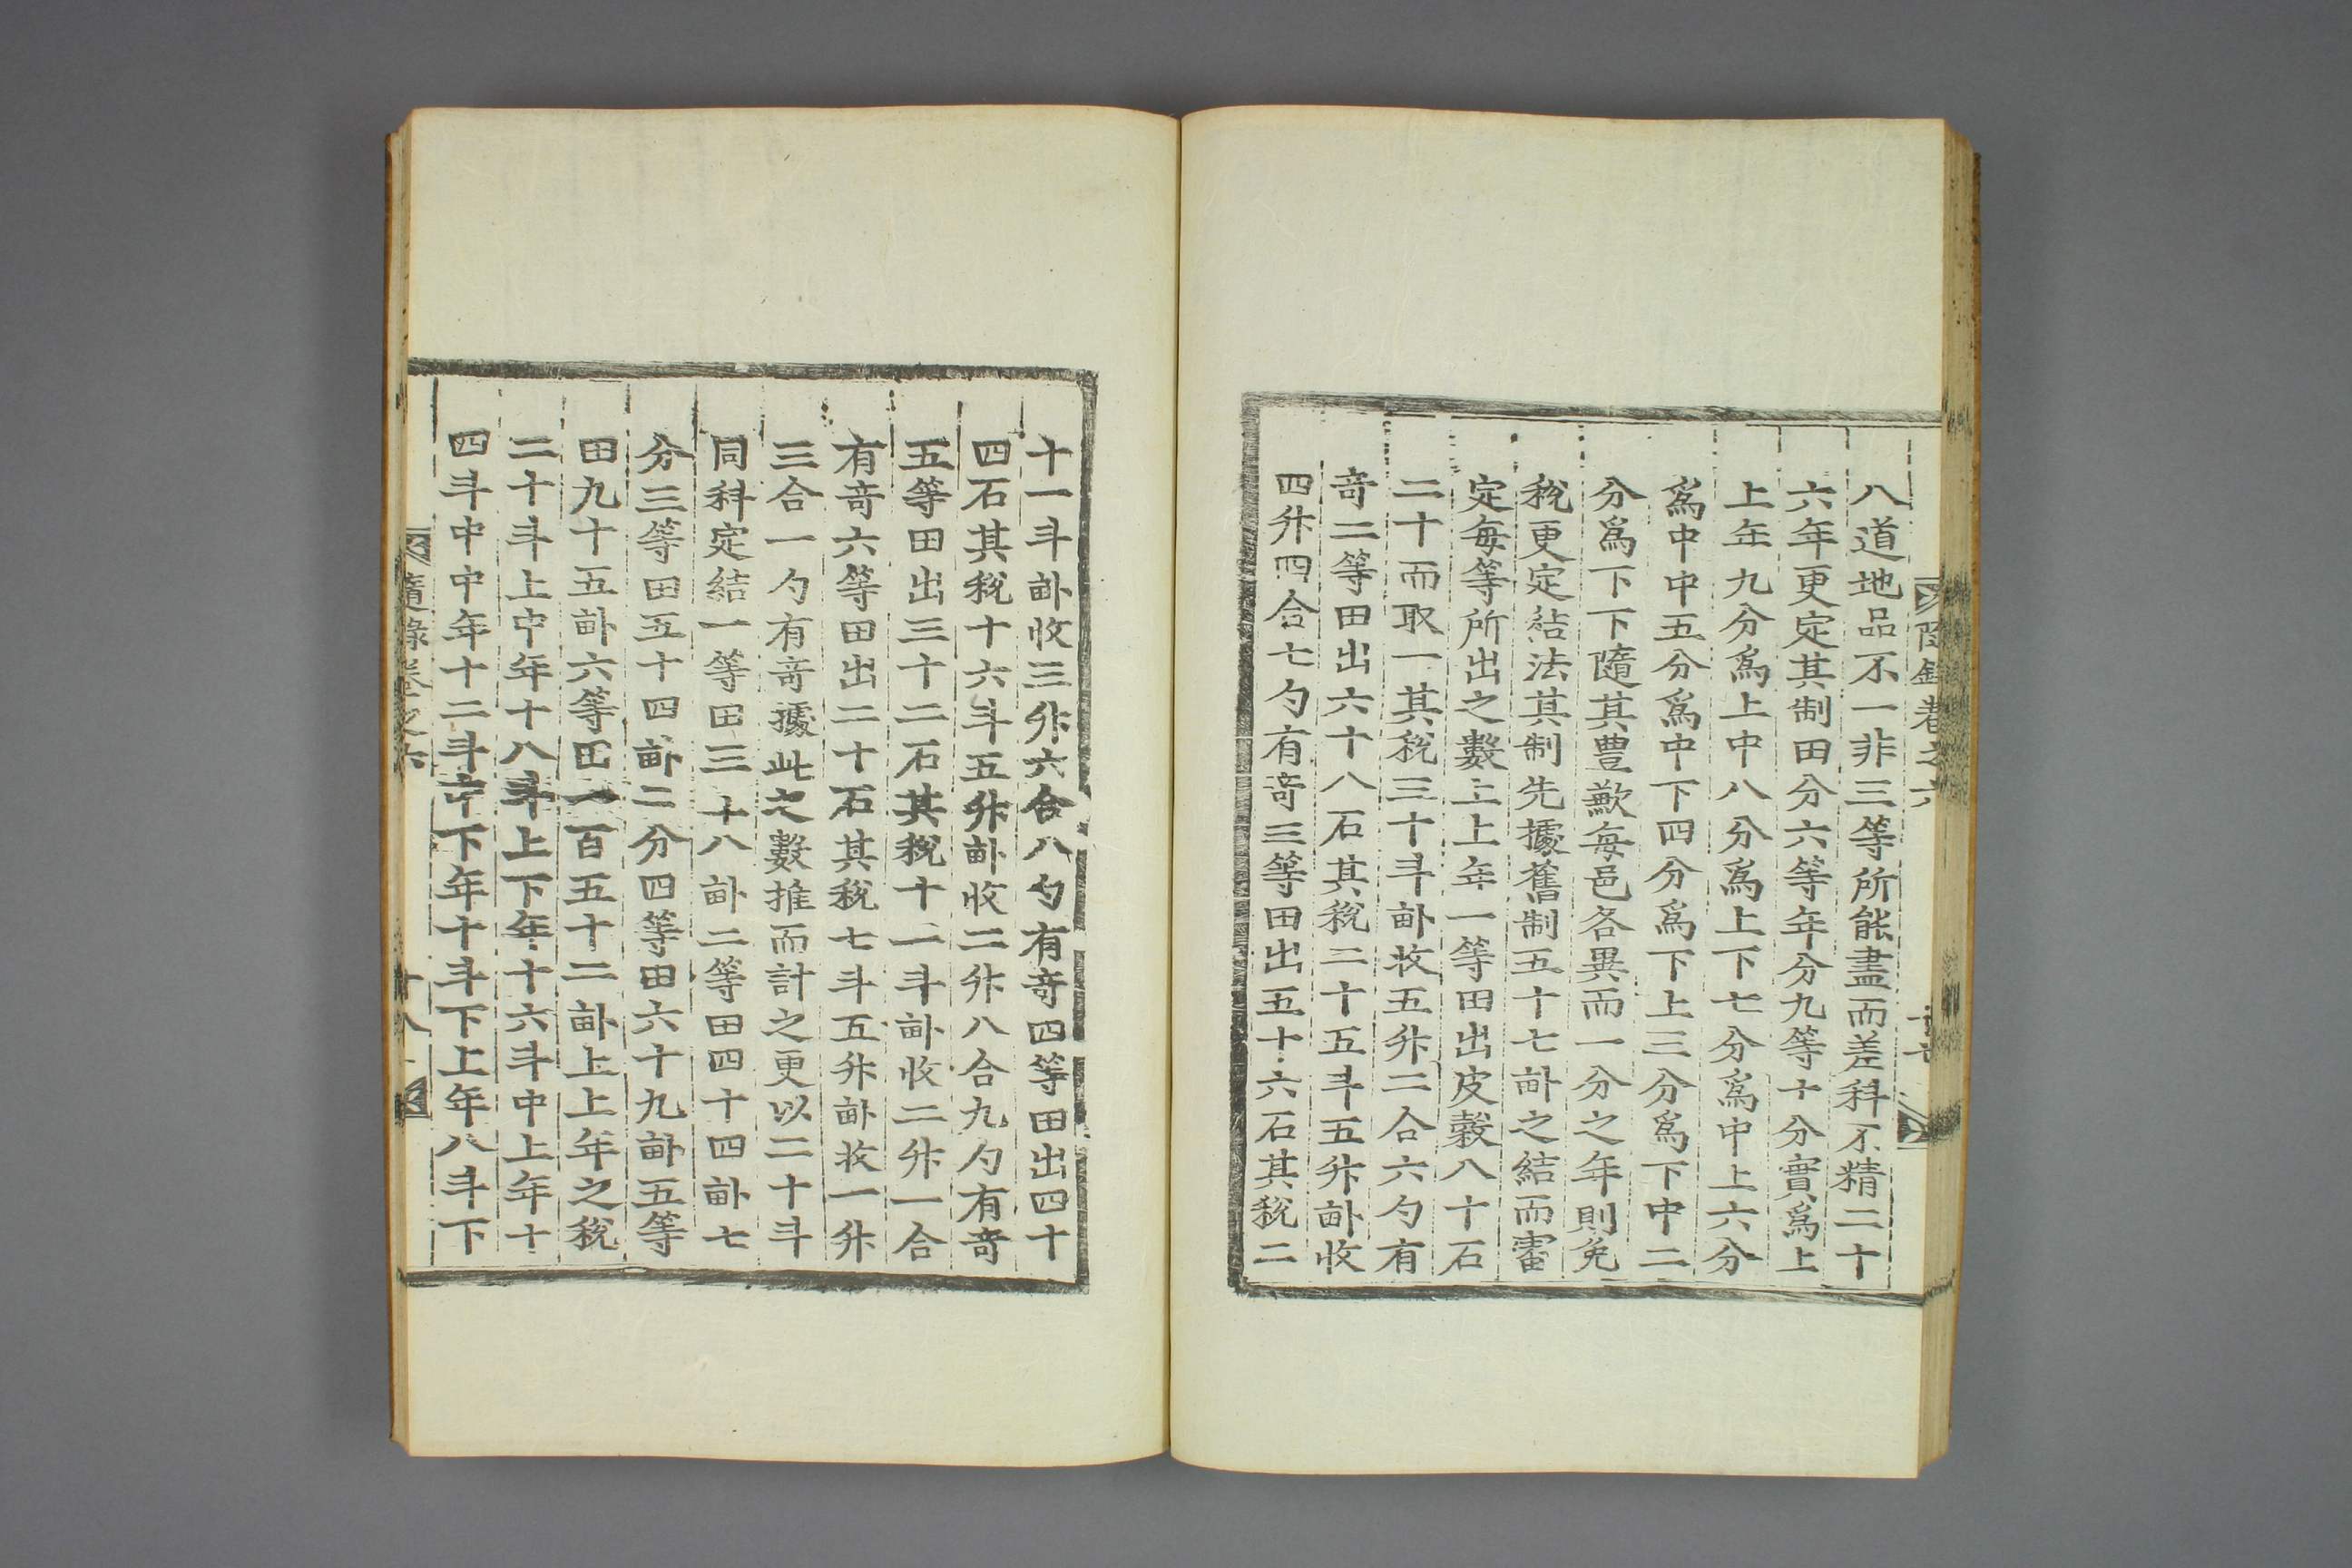 八道地品不一非三等所能盡而差科不精二十
六年更定其制田分六等年分九等十分實爲上
上年九分爲上中八分爲上下七分爲中上六分
爲中中五分爲中下四分爲下上三分爲下中二
分爲下下隨其豊歉每邑各異而一分之年則免
稅更定結法其制先據舊制五十七畝之結而審
定每等所出之數上上年一等田出皮穀八十石
二十而取一其稅三十斗畝收五升二合六勺有
竒二等田出六十八石其稅二十五斗五升畝收
四升四合七勺有竒三等田出五十六石其稅二
十一斗畝收三升六合八勺有竒四等田出四十
四石其稅十六斗五升畝收二升八合九勺有竒
五等田出三十二石其稅十一斗畝收二升一合
有竒六等田出二十石其稅七斗五升畝收一升
三合一勺有竒據此之數推而計之更以二十斗
同科定結一等田三十八畝二等田四十四畝七
分三等田五十四畝二分四等田六十九畝五等
田九十五畝六等田一百五十二畝上上年之稅
二十斗上中年十八斗上下年十六斗中上年十
四斗中中年十二斗中下年十斗下上年八斗下
隨錄卷之六
十八